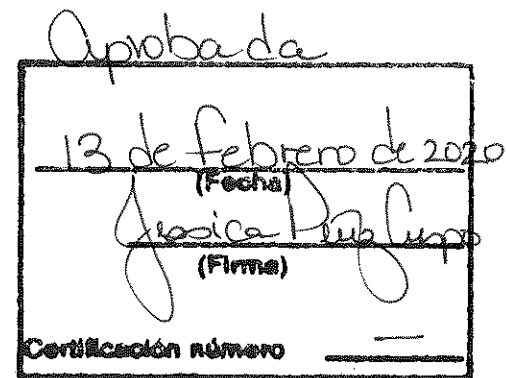 aprobada
13 de febrero de 2020
(Fecha)
Jessica Díaz Crespo
(Firma)
Certificación número —